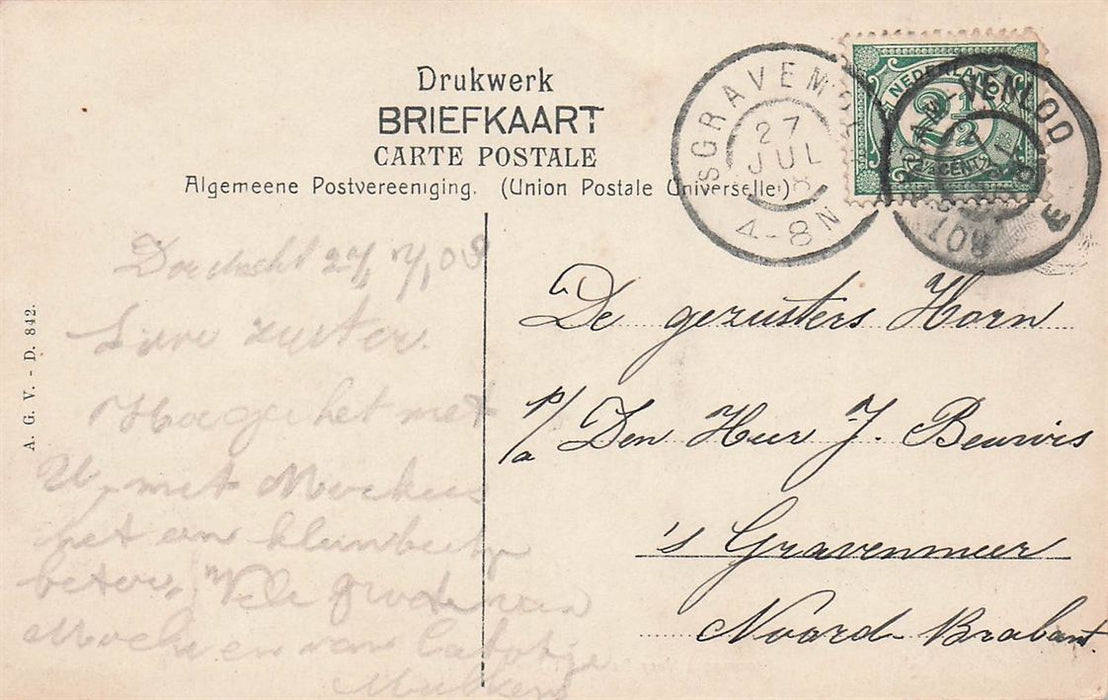 Drukwerk
BRIEFKAART
CARTE POSTALE
Algemeene Postvereeniging. (Union Postale Universelle)
'SGRAVENMOER
27
JUL
08
4-8N
NEDERLAND
2½
2½ CENT
-VENLOO
E
A. G. V. - D. 842.
Dordrecht 27/7/08
Lieve zuster.
Hoe gaat het met
U, met Moeke is
het een klein beetje
beter. Vele groeten van
Moeke en van
De gezusters Horn
p/a Den Heer J.
's Gravenmoer
Noord-Brabant